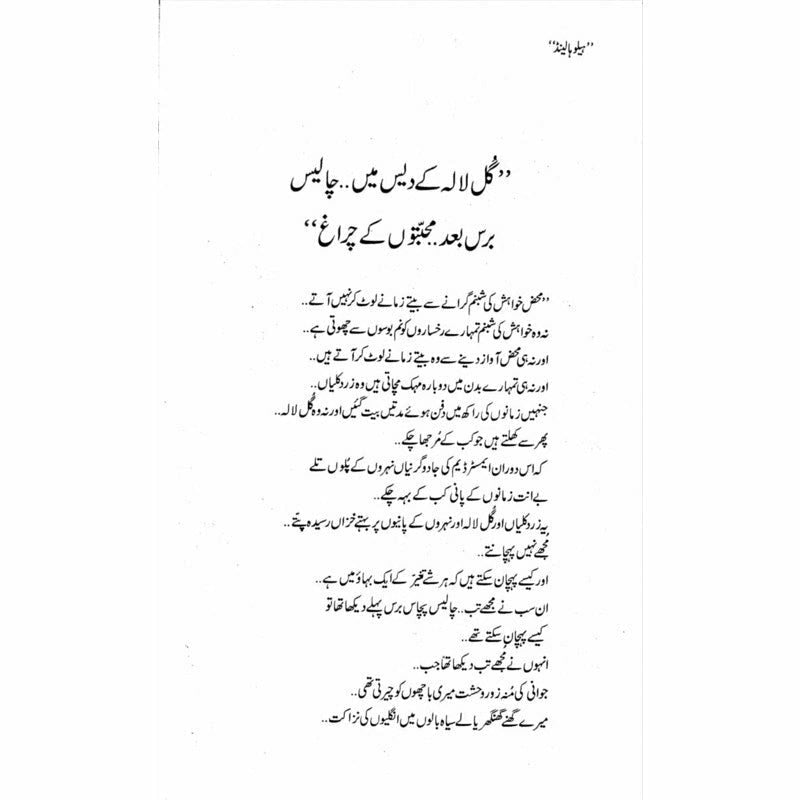 ”ہیلو ہالینڈ“
”گُل لالہ کے دیس میں..چالیس
برس بعد..محبتّوں کے چراغ“
”محض خواہش کی شبنم گرانے سے بیتے زمانے لوٹ کر نہیں آتے..
نہ وہ خواہش کی شبنم تمہارے رخساروں کو نم بوسوں سے چھوتی ہے..
اور نہ ہی محض آواز دینے سے وہ بیتے زمانے لوٹ کر آتے ہیں..
اور نہ ہی تمہارے بدن میں دوبارہ مہک مچاتی ہیں وہ زرد کلیاں..
جنہیں زمانوں کی راکھ میں دفن ہوئے مدتیں بیت گئیں اور نہ وہ گُل لالہ..
پھر سے کھلتے ہیں جو کب کے مُرجھا چکے..
کہ اس دوران ایمسٹرڈیم کی جادوگرنیاں نہروں کے پُلوں تلے
بے انت زمانوں کے پانی کب کے بہہ چکے..
یہ زرد کلیاں اور گُل لالہ اور نہروں کے پانیوں پر بہتے خزاں رسیدہ پتّے..
مُجھے نہیں پہچانتے..
اور کیسے پہچان سکتے ہیں کہ ہر شے تغیّر کے ایک بہاؤ میں ہے..
ان سب نے مُجھے تب..چالیس پچاس برس پہلے دیکھا تھا تو
کیسے پہچان سکتے تھے..
انہوں نے مُجھے تب دیکھا تھا جب..
جوانی کی مُنہ زور وحشت میری باچھوں کو چیرتی تھی..
میرے گھنے گھنگھریالے سیاہ بالوں میں انگلیوں کی نزاکت..